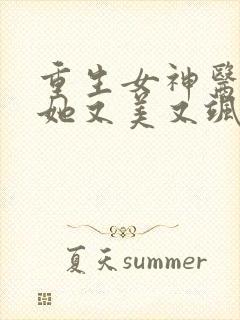 重生女神醫
她又美又颯
夏天summer